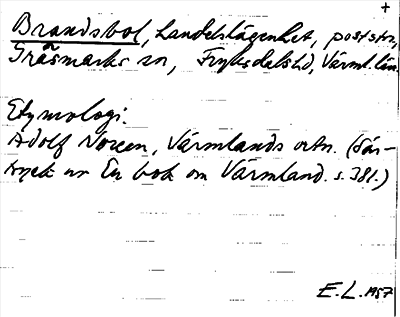 +
Brandsbol, Landelslägenhet, poststn,
Gräsmarks sn, Fryksdals hd, Värml. län.
Etymologi:
Adolf Noreen, Värmlands ortn. (Sär-
tryck ur En bok om Värmland. s. 381.)
E.L. 1957